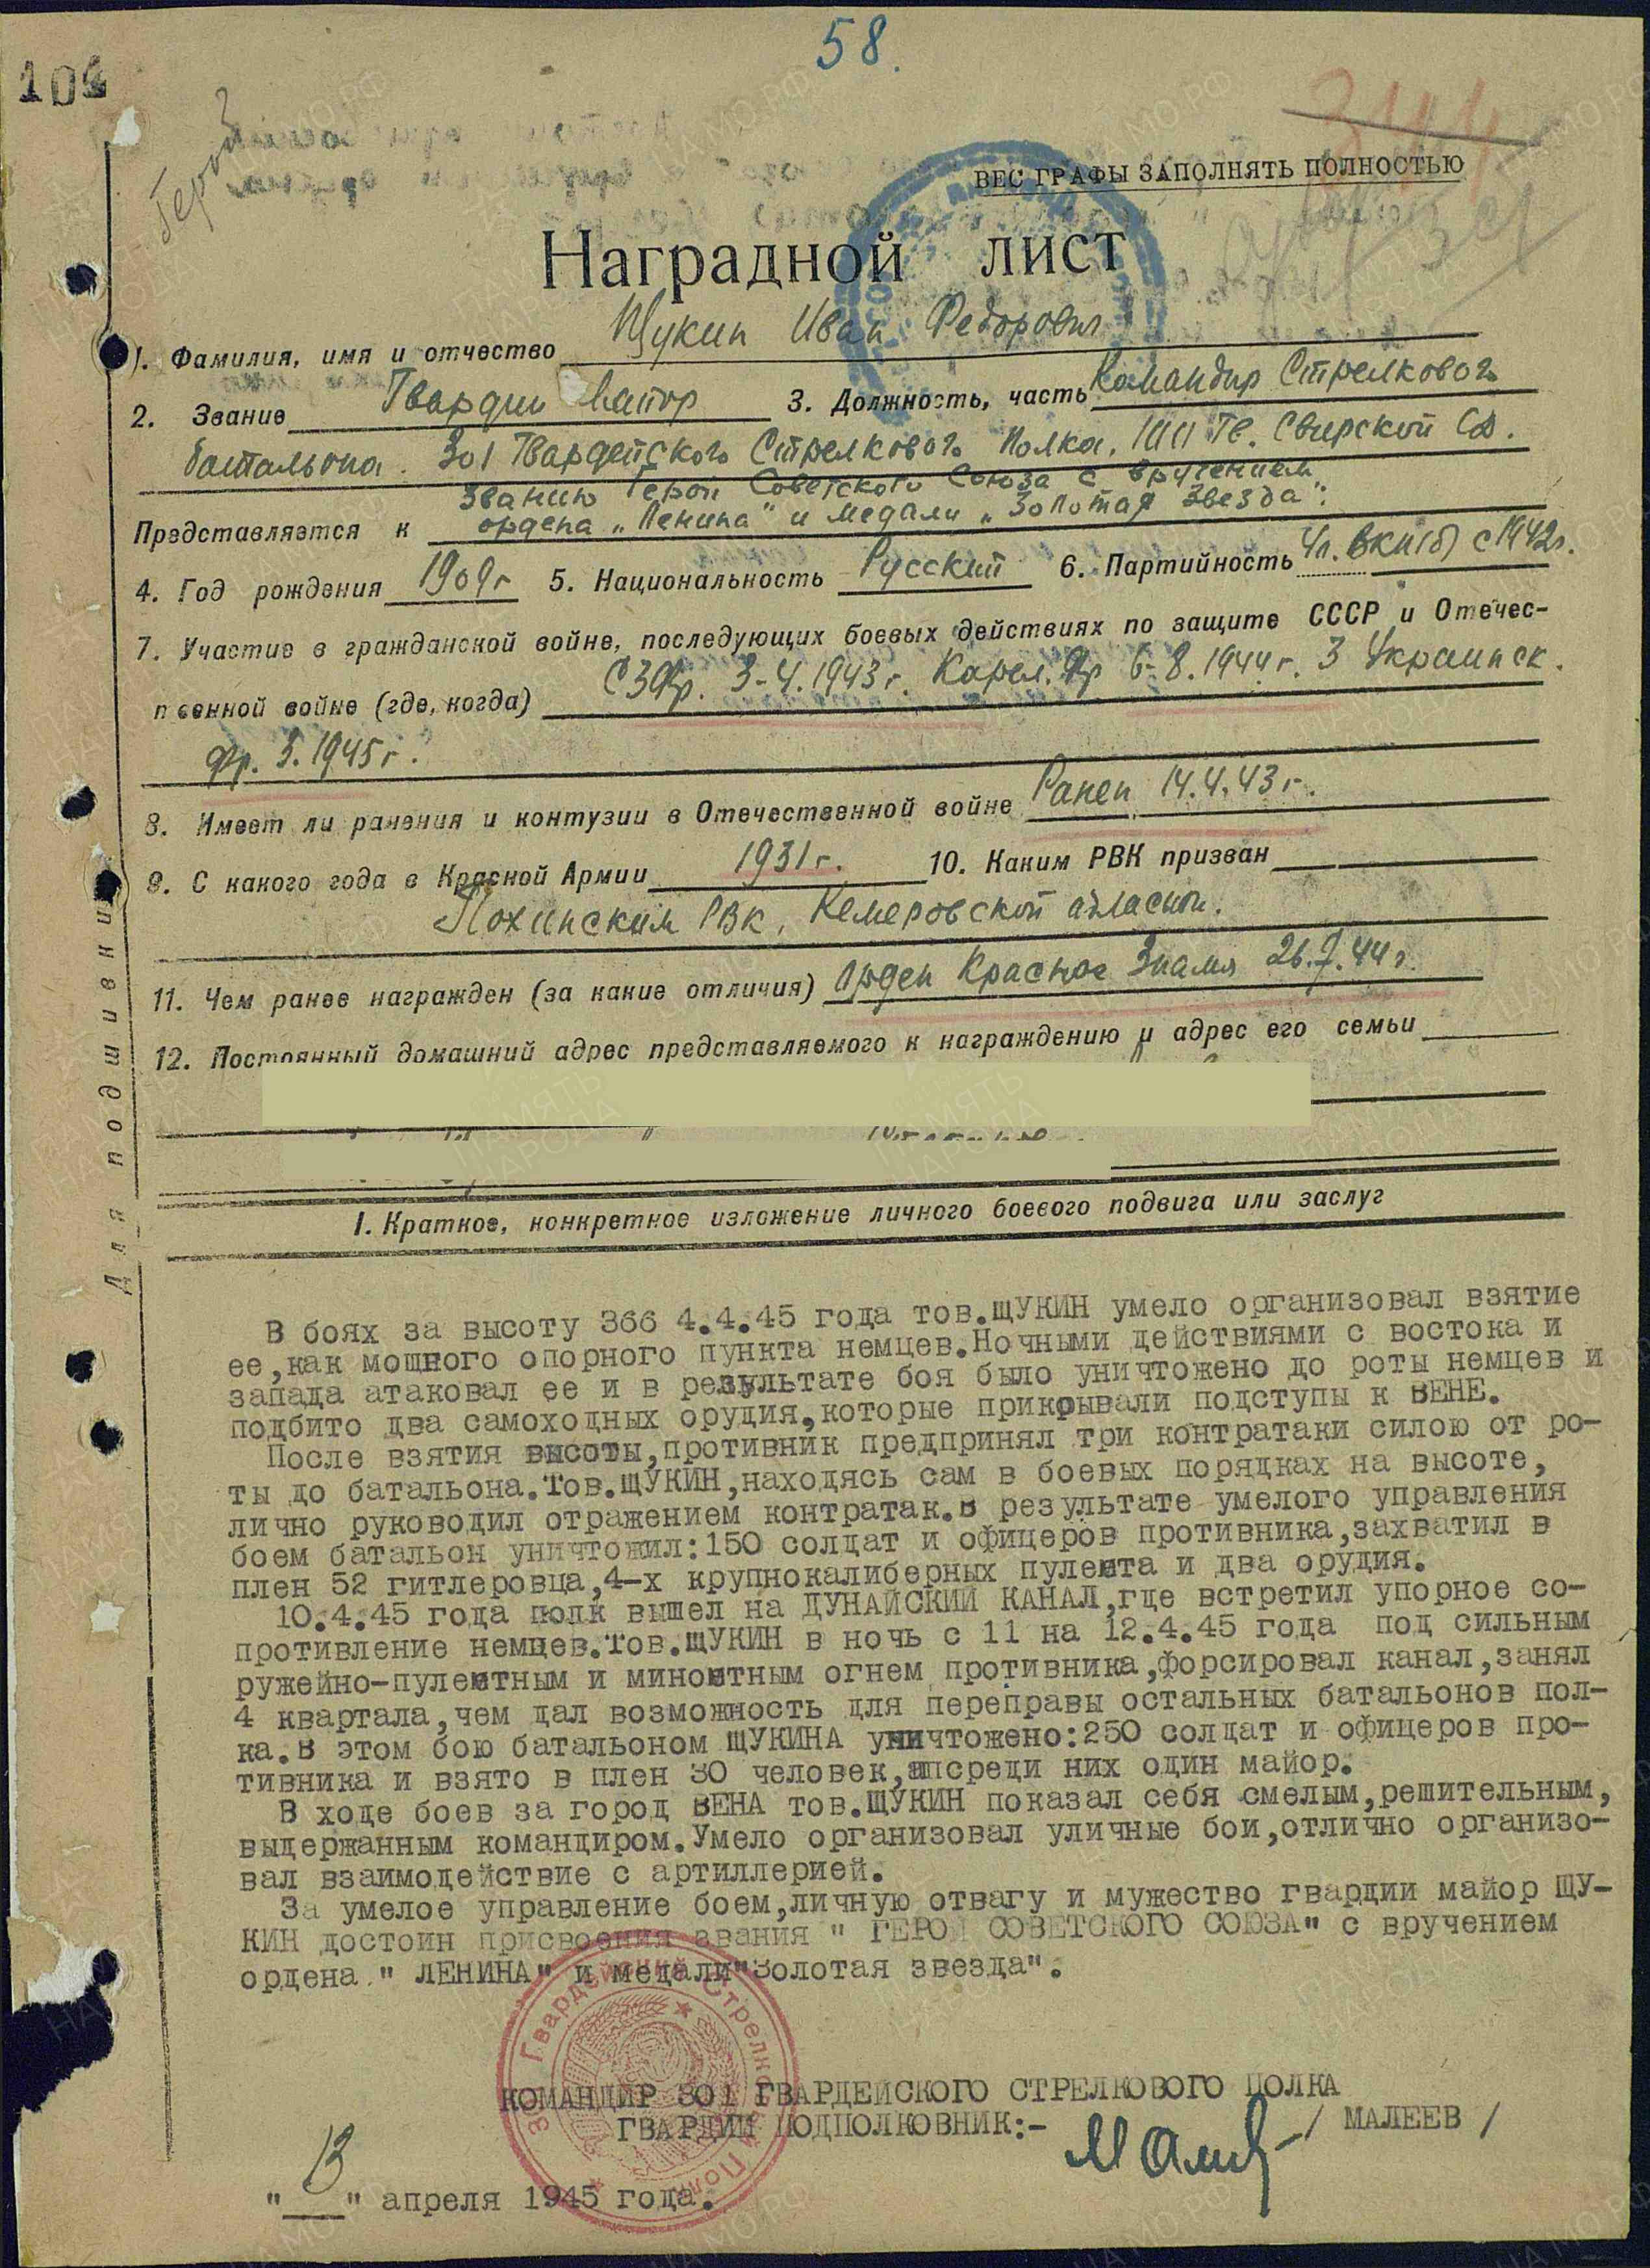 58.
104
Герой
344
ВЕС ГРАФЫ ЗАПОЛНЯТЬ ПОЛНОСТЬЮ
Наградной лист
1. Фамилия, имя и отчество Щукин Иван Федорович
2. Звание Гвардии Майор 3. Должность, часть Командир Стрелкового
батальона. 301 Гвардейского Стрелкового Полка, 100 Гв. Свирской СД.
Званию Герой Советского Союза с вручением
Представляется к ордена „Ленина" и медали „Золотая Звезда".
4. Год рождения 1909г 5. Национальность Русский 6. Партийность Чл. ВКП(б) с 1942г.
7. Участие в гражданской войне, последующих боевых действиях по защите СССР и Отечес-
твенной войне (где, когда) СЗФр. 3-4.1943г. Карел. Фр 6-8.1944г. 3 Украинск.
Фр. 3.1945г.
8. Имеет ли ранения и контузии в Отечественной войне Ранен 14.4.43г.
9. С какого года в Красной Армии 1931г. 10. Каким РВК призван
РВК, Кемеровской области.
11. Чем ранее награжден (за какие отличия) Орден Красное Знамя 26.7.44г.
12. Постоянный домашний адрес представляемого к награждению и адрес его семьи
Для подшивки
I. Краткое, конкретное изложение личного боевого подвига или заслуг
В боях за высоту 366 4.4.45 года тов.ЩУКИН умело организовал взятие
ее,как мощного опорного пункта немцев.Ночными действиями с востока и
запада атаковал ее и в результате боя было уничтожено до роты немцев и
подбито два самоходных орудия,которые прикрывали подступы к ВЕНЕ.
После взятия высоты,противник предпринял три контратаки силою от ро-
ты до батальона.Тов.ЩУКИН,находясь сам в боевых порядках на высоте,
лично руководил отражением контратак.В результате умелого управления
боем батальон уничтожил:150 солдат и офицеров противника,захватил в
плен 52 гитлеровца,4-х крупнокалиберных пулемта и два орудия.
10.4.45 года полк вышел на ДУНАЙСКИЙ КАНАЛ,где встретил упорное со-
противление немцев.Тов.ЩУКИН в ночь с 11 на 12.4.45 года под сильным
ружейно-пулеметным и минометным огнем противника,форсировал канал,занял
4 квартала,чем дал возможность для переправы остальных батальонов пол-
ка.В этом бою батальоном ЩУКИНА уничтожено:250 солдат и офицеров про-
тивника и взято в плен 30 человек, среди них один майор.
В ходе боев за город ВЕНА тов.ЩУКИН показал себя смелым,решительным,
выдержанным командиром.Умело организовал уличные бои,отлично организо-
вал взаимодействие с артиллерией.
За умелое управление боем,личную отвагу и мужество гвардии майор ЩУ-
КИН достоин присвоения звания " ГЕРОЙ СОВЕТСКОГО СОЮЗА" с вручением
ордена " ЛЕНИНА" и медали"Золотая звезда".
КОМАНДИР 301 ГВАРДЕЙСКОГО СТРЕЛКОВОГО ПОЛКА
ГВАРДИИ ПОДПОЛКОВНИК:- / МАЛЕЕВ /
"13" апреля 1945 года.